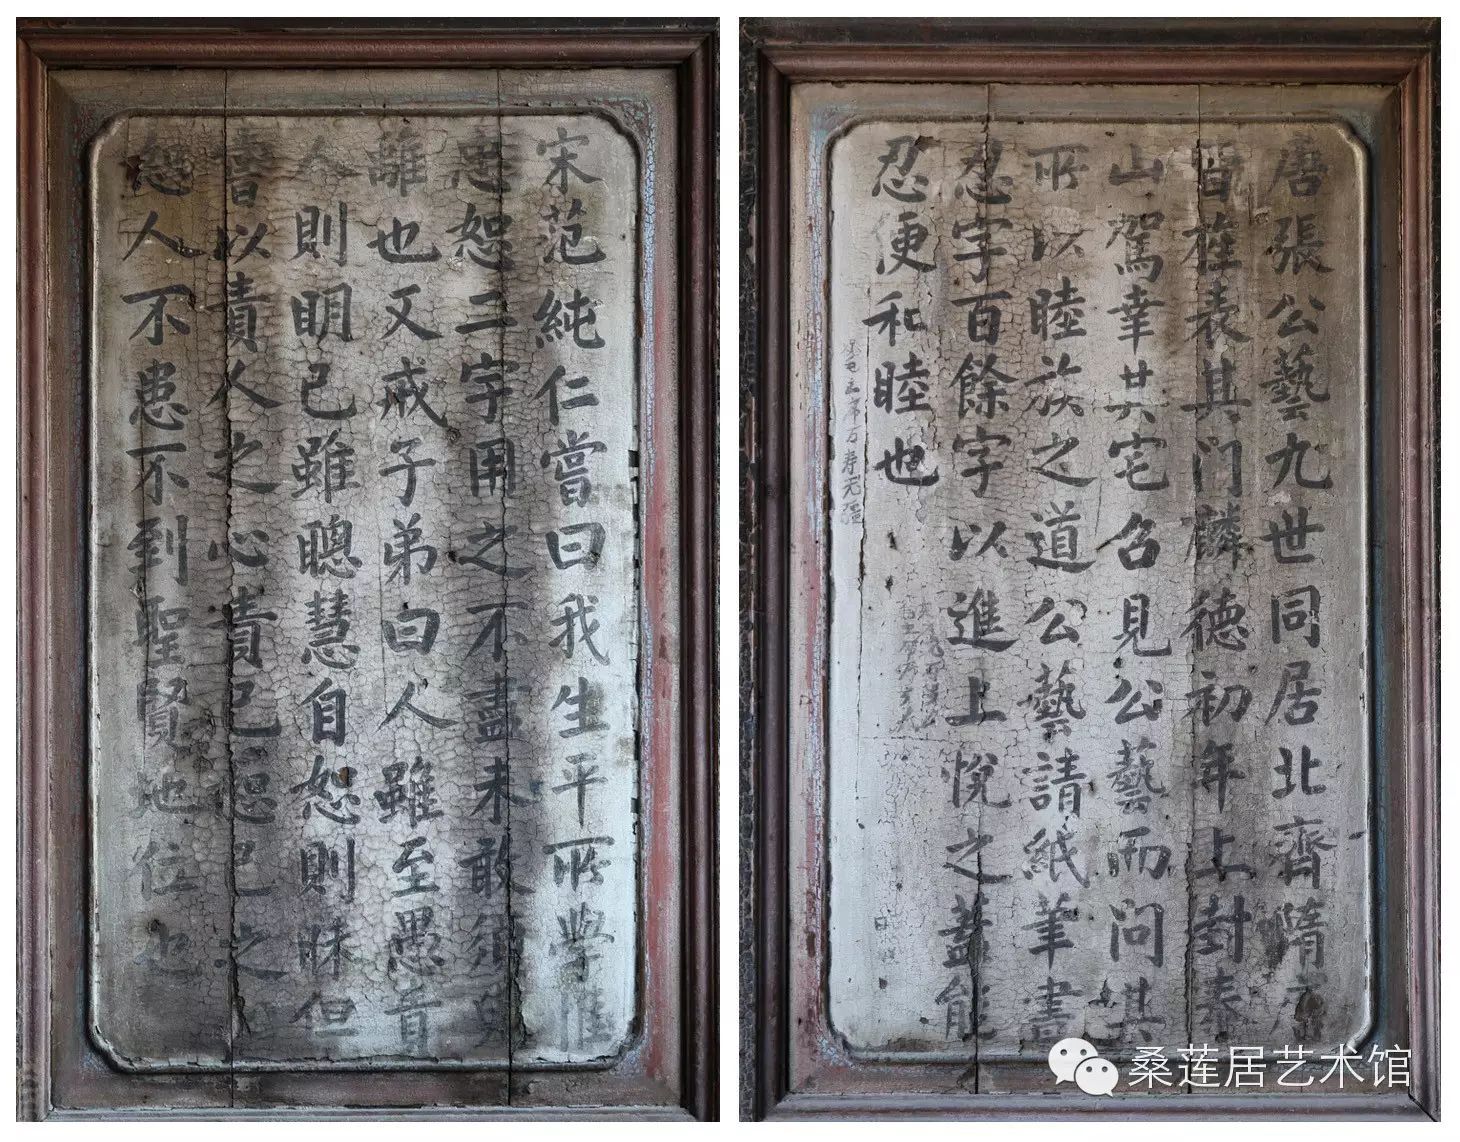 唐張公藝九世同居北齊隋唐
皆旌表其门麟德初年上封泰
山駕幸其宅召見公藝而问其
所以睦族之道公藝請紙筆書
忍字百餘字以進上悅之蓋能
忍便和睦也
毛主席万寿无疆
宋范純仁嘗曰我生平所學惟
忠恕二字用之不盡未敢須臾
離也又戒子弟曰人雖至愚責
人則明己雖聰慧自恕則昧但
嘗以責人之心責己恕己之心
恕人不患不到聖賢地位也
桑莲居艺术馆